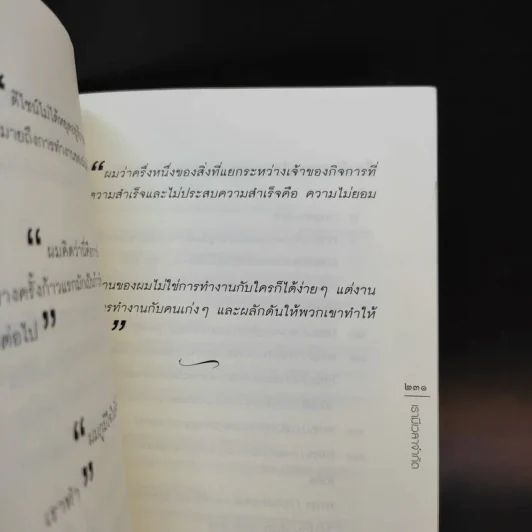 ดีไซน์ไม่ได้
มายถึงการทำงาน
“ผมคิดว่านี่คือ
างครั้งก้าวแรกมักไม่
ต่อไป”
เขาทำ”
“ผมว่าครึ่งหนึ่งของสิ่งที่แยกระหว่างเจ้าของกิจการที่
ความสำเร็จและไม่ประสบความสำเร็จคือ ความไม่ยอม
านของผมไม่ใช่การทำงานกับใครก็ได้ง่ายๆ แต่งาน
การทำงานกับคนเก่งๆ และผลักดันให้พวกเขาทำให้
”
๒๓๑
เรามีเวลาจำกัด